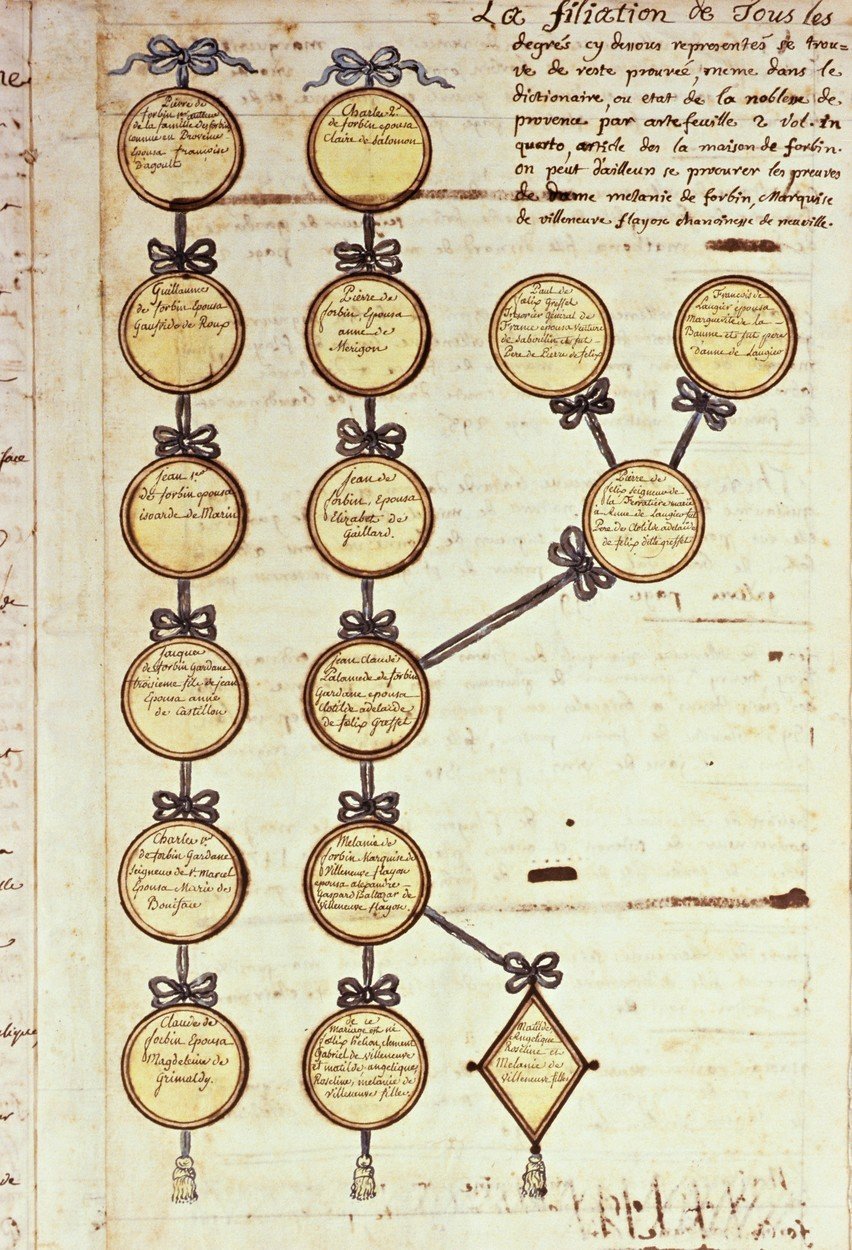 La filiation de Tous les
degrés cy dessous representés se trou=
ve de reste prouvée, meme dans le
dictionaire, ou etat de la noblesse de
provence par artefeuille 2 vol. In
quarto, article des la maison de forbin.
on peut d'ailleurs se procurer les preuves
de Dame melanie de forbin, Marquise
de villeneuve flayosc chanoinesse de neuville.
Pierre de
forbin 1er autheur
de la famille des forbin
connue en Provence
Epousa françoise
D'agoult
Guillaume
de forbin Epousa
Gaufride de Roux
jean 1er
de forbin epousa
isoarde de Marin
jacques
de forbin Gardane
troisieme fils de jean
Epousa anne
de Castillon
Charles 1er
de forbin Gardane
seigneur de St. Marcel
Epousa Marie de
Boniface
Claude de
forbin Epousa
Magdeleine de
Grimaldy.
Charles 2e
de forbin epousa
Claire de salomon
Pierre de
forbin, Epousa
anne de
Merigon
jean de
forbin, Epousa
Elizabet de
Gaillard.
jean claude
Palamede de forbin
Gardane epousa
Clotilde adelaide
de felix Greffet
Melanie de
forbin Marquise de
Villeneuve flayosc
epousa alexandre
Gaspard Baltazar de
Villeneuve flayosc.
de ce
mariage est né
felix helion, clement
Gabriel de villeneuve
et matilde, angelique,
Roseline, melanie de
villeneuve filles.
Paul de
felix Greffet
Tresorier général de
France epousa
de saboulin et fut
Pere de Pierre de felix
François de
Laugier epousa
Marguerite de la
Baume et fut pere
D'anne de Laugier
Pierre de
felix seigneur de
la Ferratiere marié
a Anne de Laugier fut
Pere de Clotilde adelaide
de felix dille greffet
Matilde
Angelique
Roseline et
Melanie de
Villeneuve filles